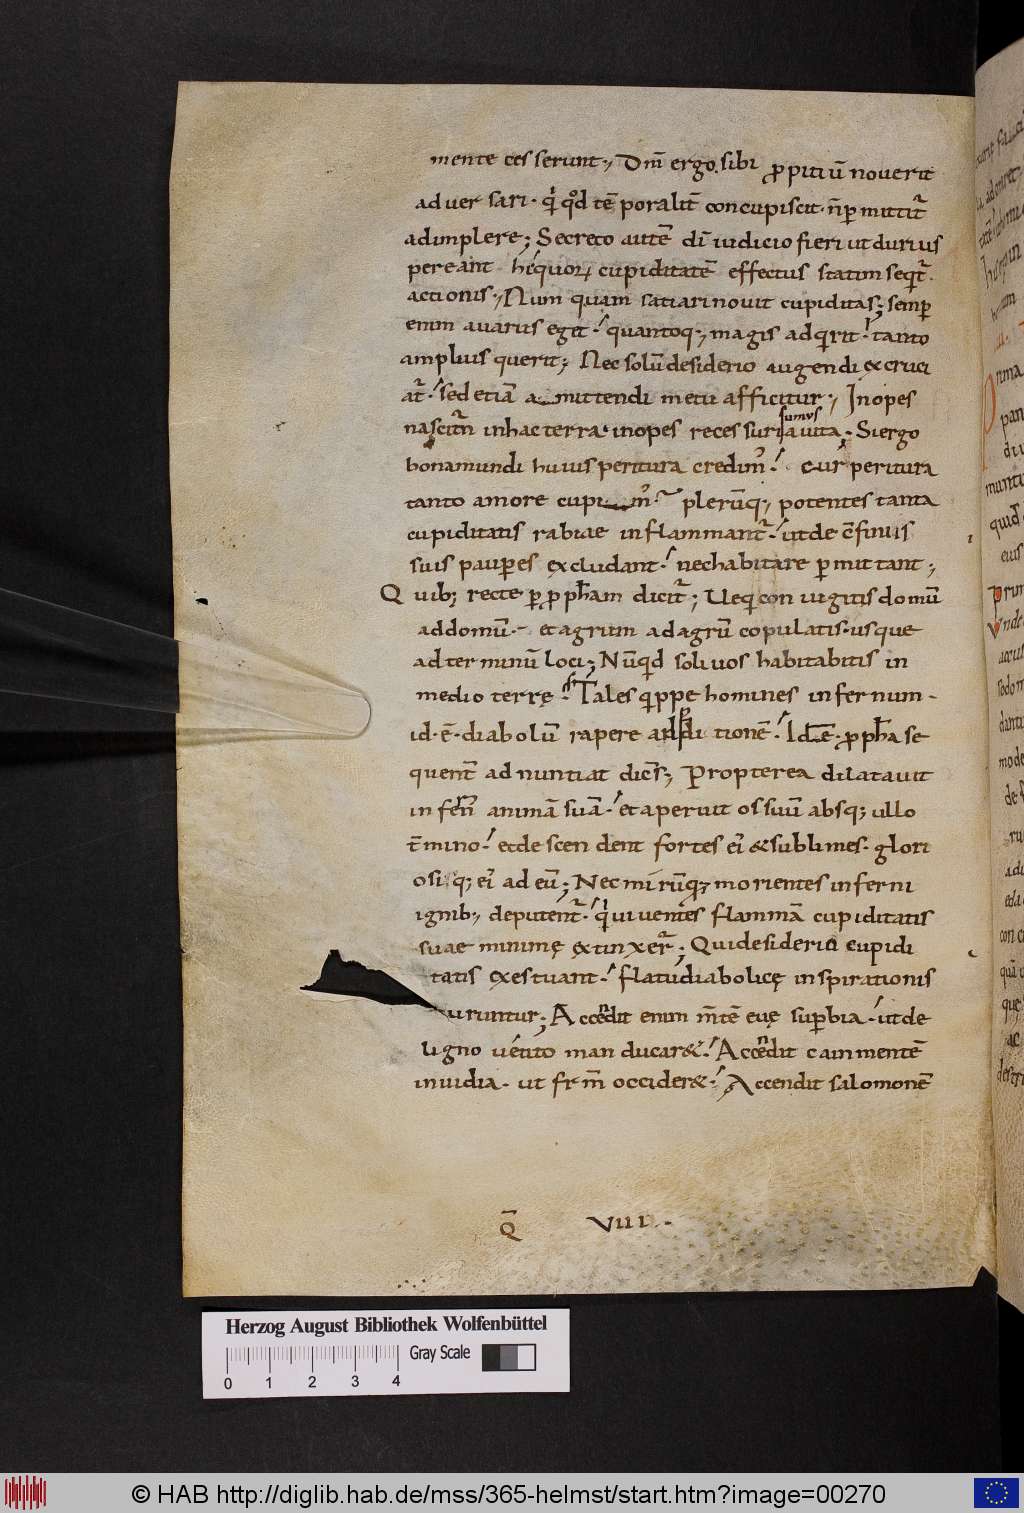 mente cesserunt·, Dm̄ ergo sibi ꝓpitiū noverit
adversari· qͥ qd̓ tēporalit̄ concupiscit· n̄ ꝑmittit᷑
adimplere; Secreto autē dī iudicio fieri ut durius
pereant he quoꝝ cupiditatē effectus statim seqt᷑
actionis·, Num quam satiari novit cupiditas; semꝑ
enim avarus eget·ˊ quantoq·, magis adqrit·ˊ tanto
amplius querit·, Nec solū desiderio augendi excruci
at᷑·ˊ sed etiā amittendi metu afficitur·, Inopes
nascim᷑ in hac terra· inopes recessuri sumus a vita· Si ergo
bona mundi huius peritura credim᷒·ˊ cur peritura
tanto amore cupim᷒·~ plerūq·, potentes tanta
cupiditatis rabiae inflammant᷑·ˊ ut de c̄finiis
suis pauꝑes excludant·ˊ nec habitare ꝑmittant·,
Quib; recte ꝑ ꝓpham̄ dicit᷑; Ve qͥ coniugitis domū
ad domū·- et agrum ad agrū copulatis· usque
ad terminū loci; Nūqͥd soli vos habitabitis in
medio terrę·ˊ Tales qͥppe homines infernum·
id·ē·diabolū rapere ad ꝑditionē·ˊ Idē· ꝓpha se
quent̄ adnuntiat dicēs·, Propterea dilatavit
infern̄ animā suā·ˊ et aperuit os suū absq; ullo
t̄mino·ˊ et descendent fortes eī & sublimes· glori
osiq; eī ad eū; Nec mirūq·, morientes inferni
ignib·, deputent᷑·ˊ qͥ viventes flammā cupiditatis
suae minimę extinxer᷑; Qui desiderio cupidi
tatis exestuant·ˊ flatu diabolicę inspirationis
uruntur; Accendit enim mētē evę suꝑbia·ˊ ut de
ligno vetito manducar&·ˊ Accendit cain mentē
invidia· ut frm̄ occider&·ˊ Accendit salomonē
Q̄ VIII·
Herzog August Bibliothek Wolfenbüttel
Gray Scale
0 1 2 3 4
© HAB http://diglib.hab.de/mss/365-helmst/start.htm?image=00270